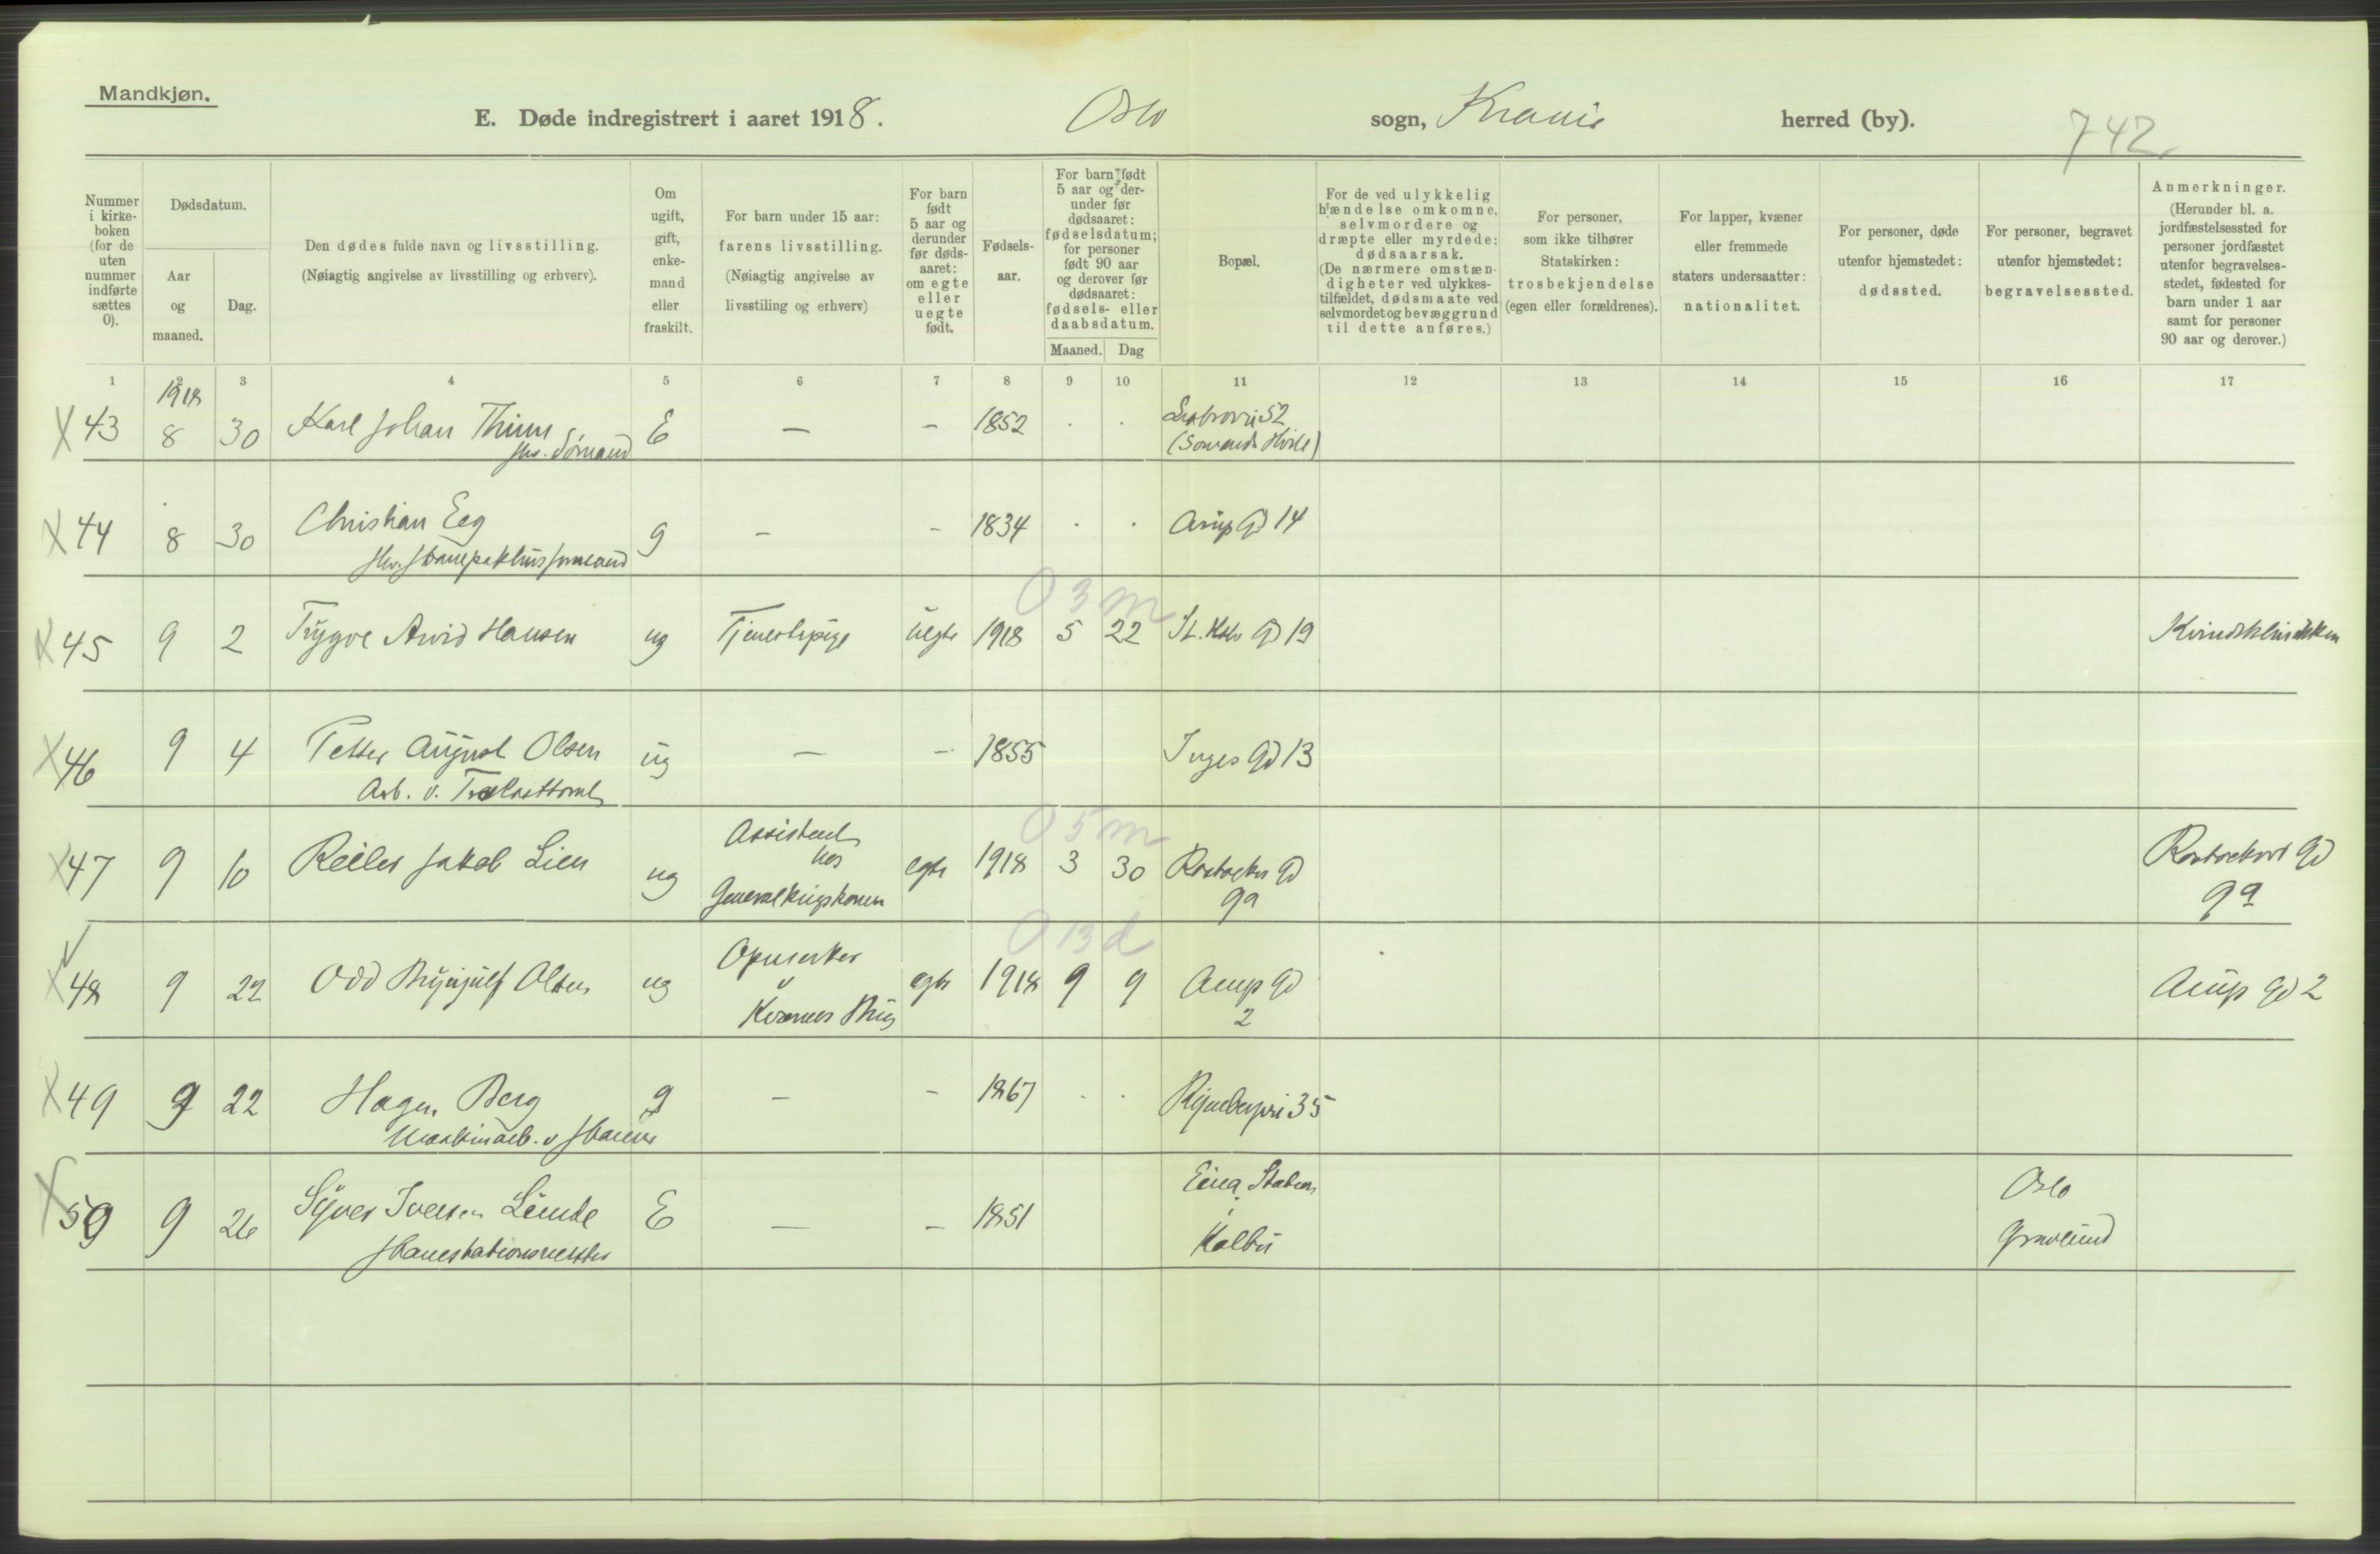 Mandkjøn.
E. Døde indregistrert i aaret 1918. Oslo sogn, Krania herred (by).
742
Nummer i kirkeboken (for de uten nummer indførte sættes 0).
Dødsdatum.
Aar og maaned.
Dag.
Den dødes fulde navn og livsstilling.
(Nøiagtig angivelse av livsstilling og erhverv).
Om ugift, gift, enkemand eller fraskilt.
For barn under 15 aar: farens livsstilling.
(Nøiagtig angivelse av livsstiling og erhverv)
For barn født 5 aar og derunder før dødsaaret: om egte eller uegte født.
Fødselsaar.
For barn født 5 aar og derunder før dødsaaret: fødselsdatum; for personer født 90 aar og derover før dødsaaret: fødsels- eller daabsdatum.
Maaned. Dag
Bopæl.
For de ved ulykkelig hændelse omkomne, selvmordere og dræpte eller myrdede: dødsaarsak.
(De nærmere omstændigheter ved ulykkestilfældet, dødsmaate ved selvmordet og bevæggrund til dette anføres.)
For personer, som ikke tilhører Statskirken: trosbekjendelse (egen eller forældrenes).
For lapper, kvæner eller fremmede staters undersaatter: nationalitet.
For personer, døde utenfor hjemstedet: dødssted.
For personer, begravet utenfor hjemstedet: begravelsessted.
Anmerkninger.
(Herunder bl. a. jordfæstelsessted for personer jordfæstet utenfor begravelsesstedet, fødested for barn under 1 aar samt for personer 90 aar og derover.)
1 2 3 4 5 6 7 8 9 10 11 12 13 14 15 16 17
1918
X 43 8 30 Karl Johan Thune E — – 1852 52
fhv. Sømand
X 44 8 30 Christian Eeg g – – 1834 Arup Gd 14
fhv.
03m
X 45 9 2 Trygve Arvid Hansen ug Tjenestepige uegte 1918 5 22 St. Halv Gd 19
X 46 9 4 Petter August Olsen ug — – 1855 Inges Gd 13
Arb. v.
05m
X 47 9 10 Reiler Jakob Lien ug Assistent hos egte 1918 3 30 Rostocker Gd 9a Rostockers Gd 9a
013d
X 48 9 22 Odd Brynjulf Olsen ug Opmerker v Kværner Brug egte 1918 9 9 Arup Gd 2 Arup Gd 2
X 49 9 22 Hagen Berg g – – 1867 35
Maskinarb. v
X 50 9 26 Syver Iversen Lunde E — – 1851 Eina Station i Kolbu Oslo Gravlund